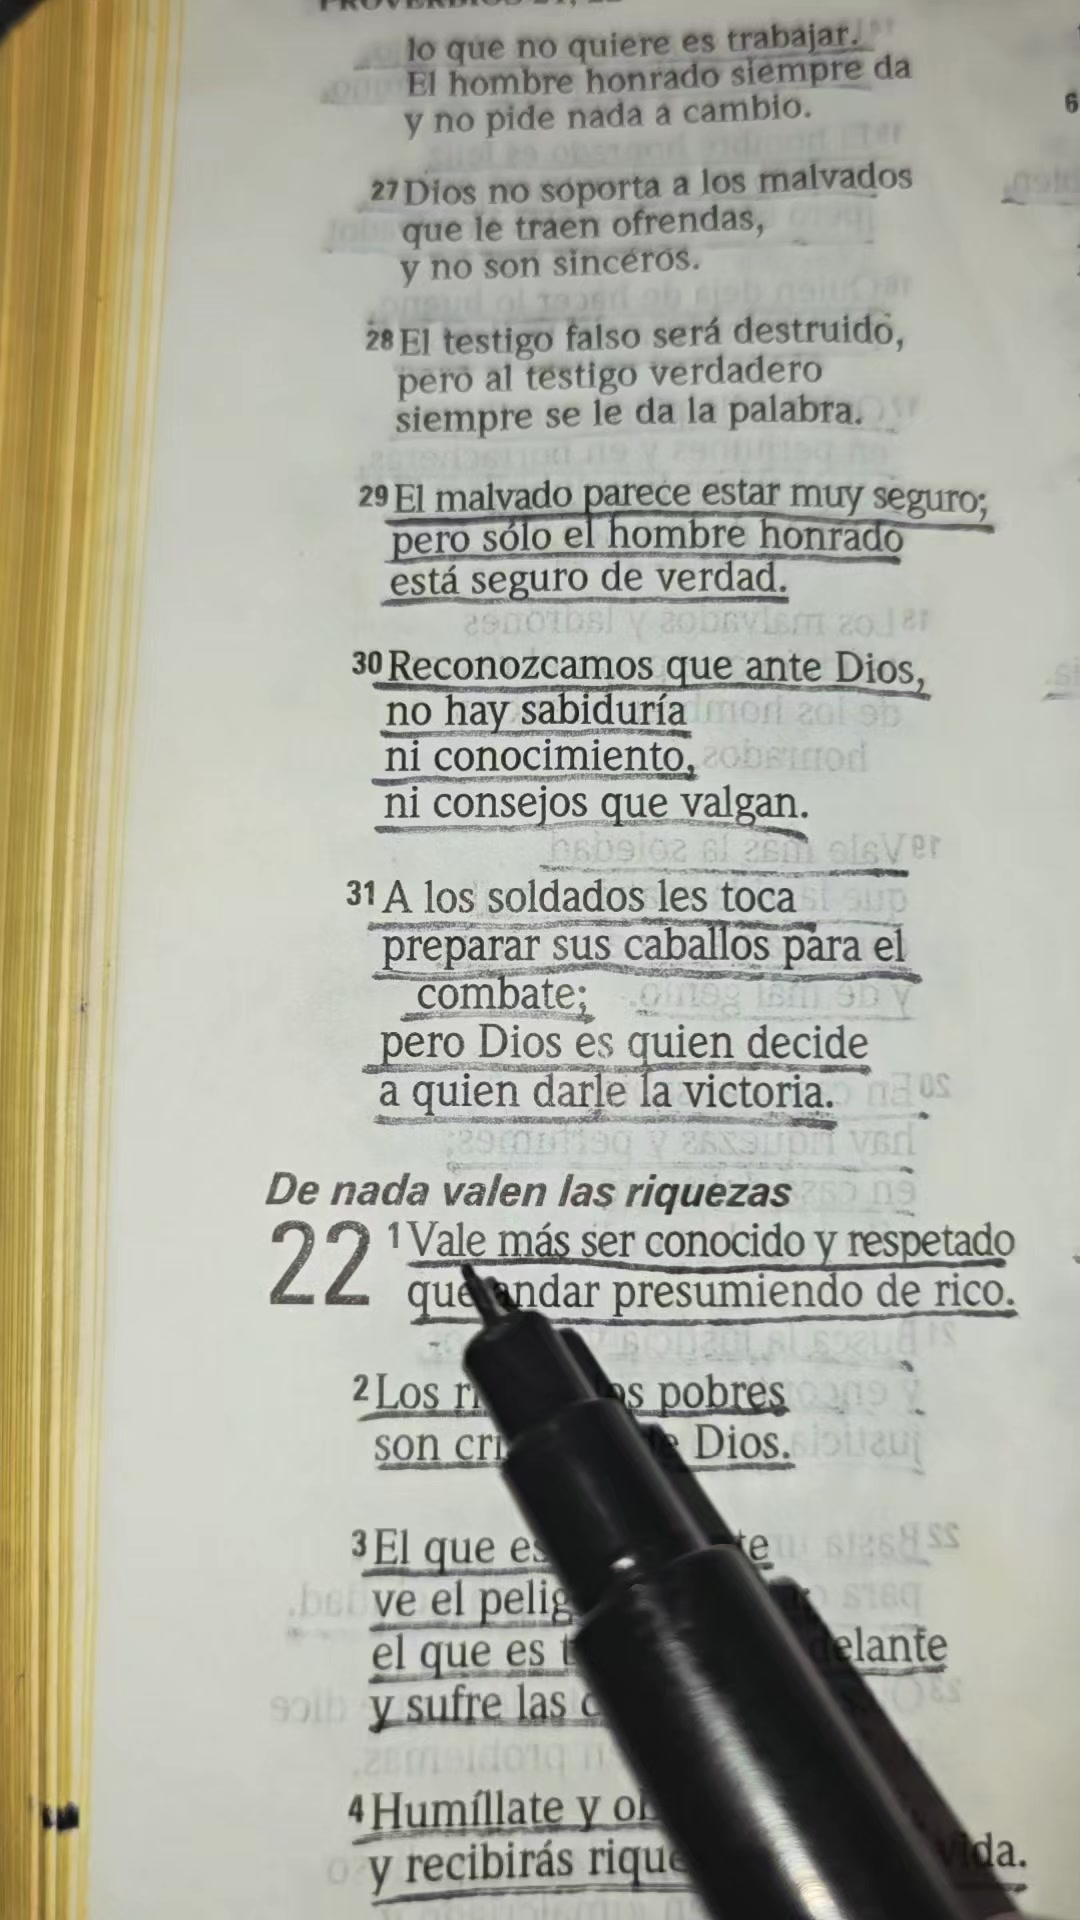 lo que no quiere es trabajar.
El hombre honrado siempre da
y no pide nada a cambio.
27 Dios no soporta a los malvados
que le traen ofrendas,
y no son sinceros.
28 El testigo falso será destruido,
pero al testigo verdadero
siempre se le da la palabra.
29 El malvado parece estar muy seguro;
pero sólo el hombre honrado
está seguro de verdad.
30 Reconozcamos que ante Dios,
no hay sabiduría
ni conocimiento,
ni consejos que valgan.
31 A los soldados les toca
preparar sus caballos para el
combate;
pero Dios es quien decide
a quien darle la victoria.
De nada valen las riquezas
22 1 Vale más ser conocido y respetado
que andar presumiendo de rico.
2 Los pobres
son Dios.
3 El que
ve el
el que es
y sufre las
4 Humíllate y
y recibirás vida.
6